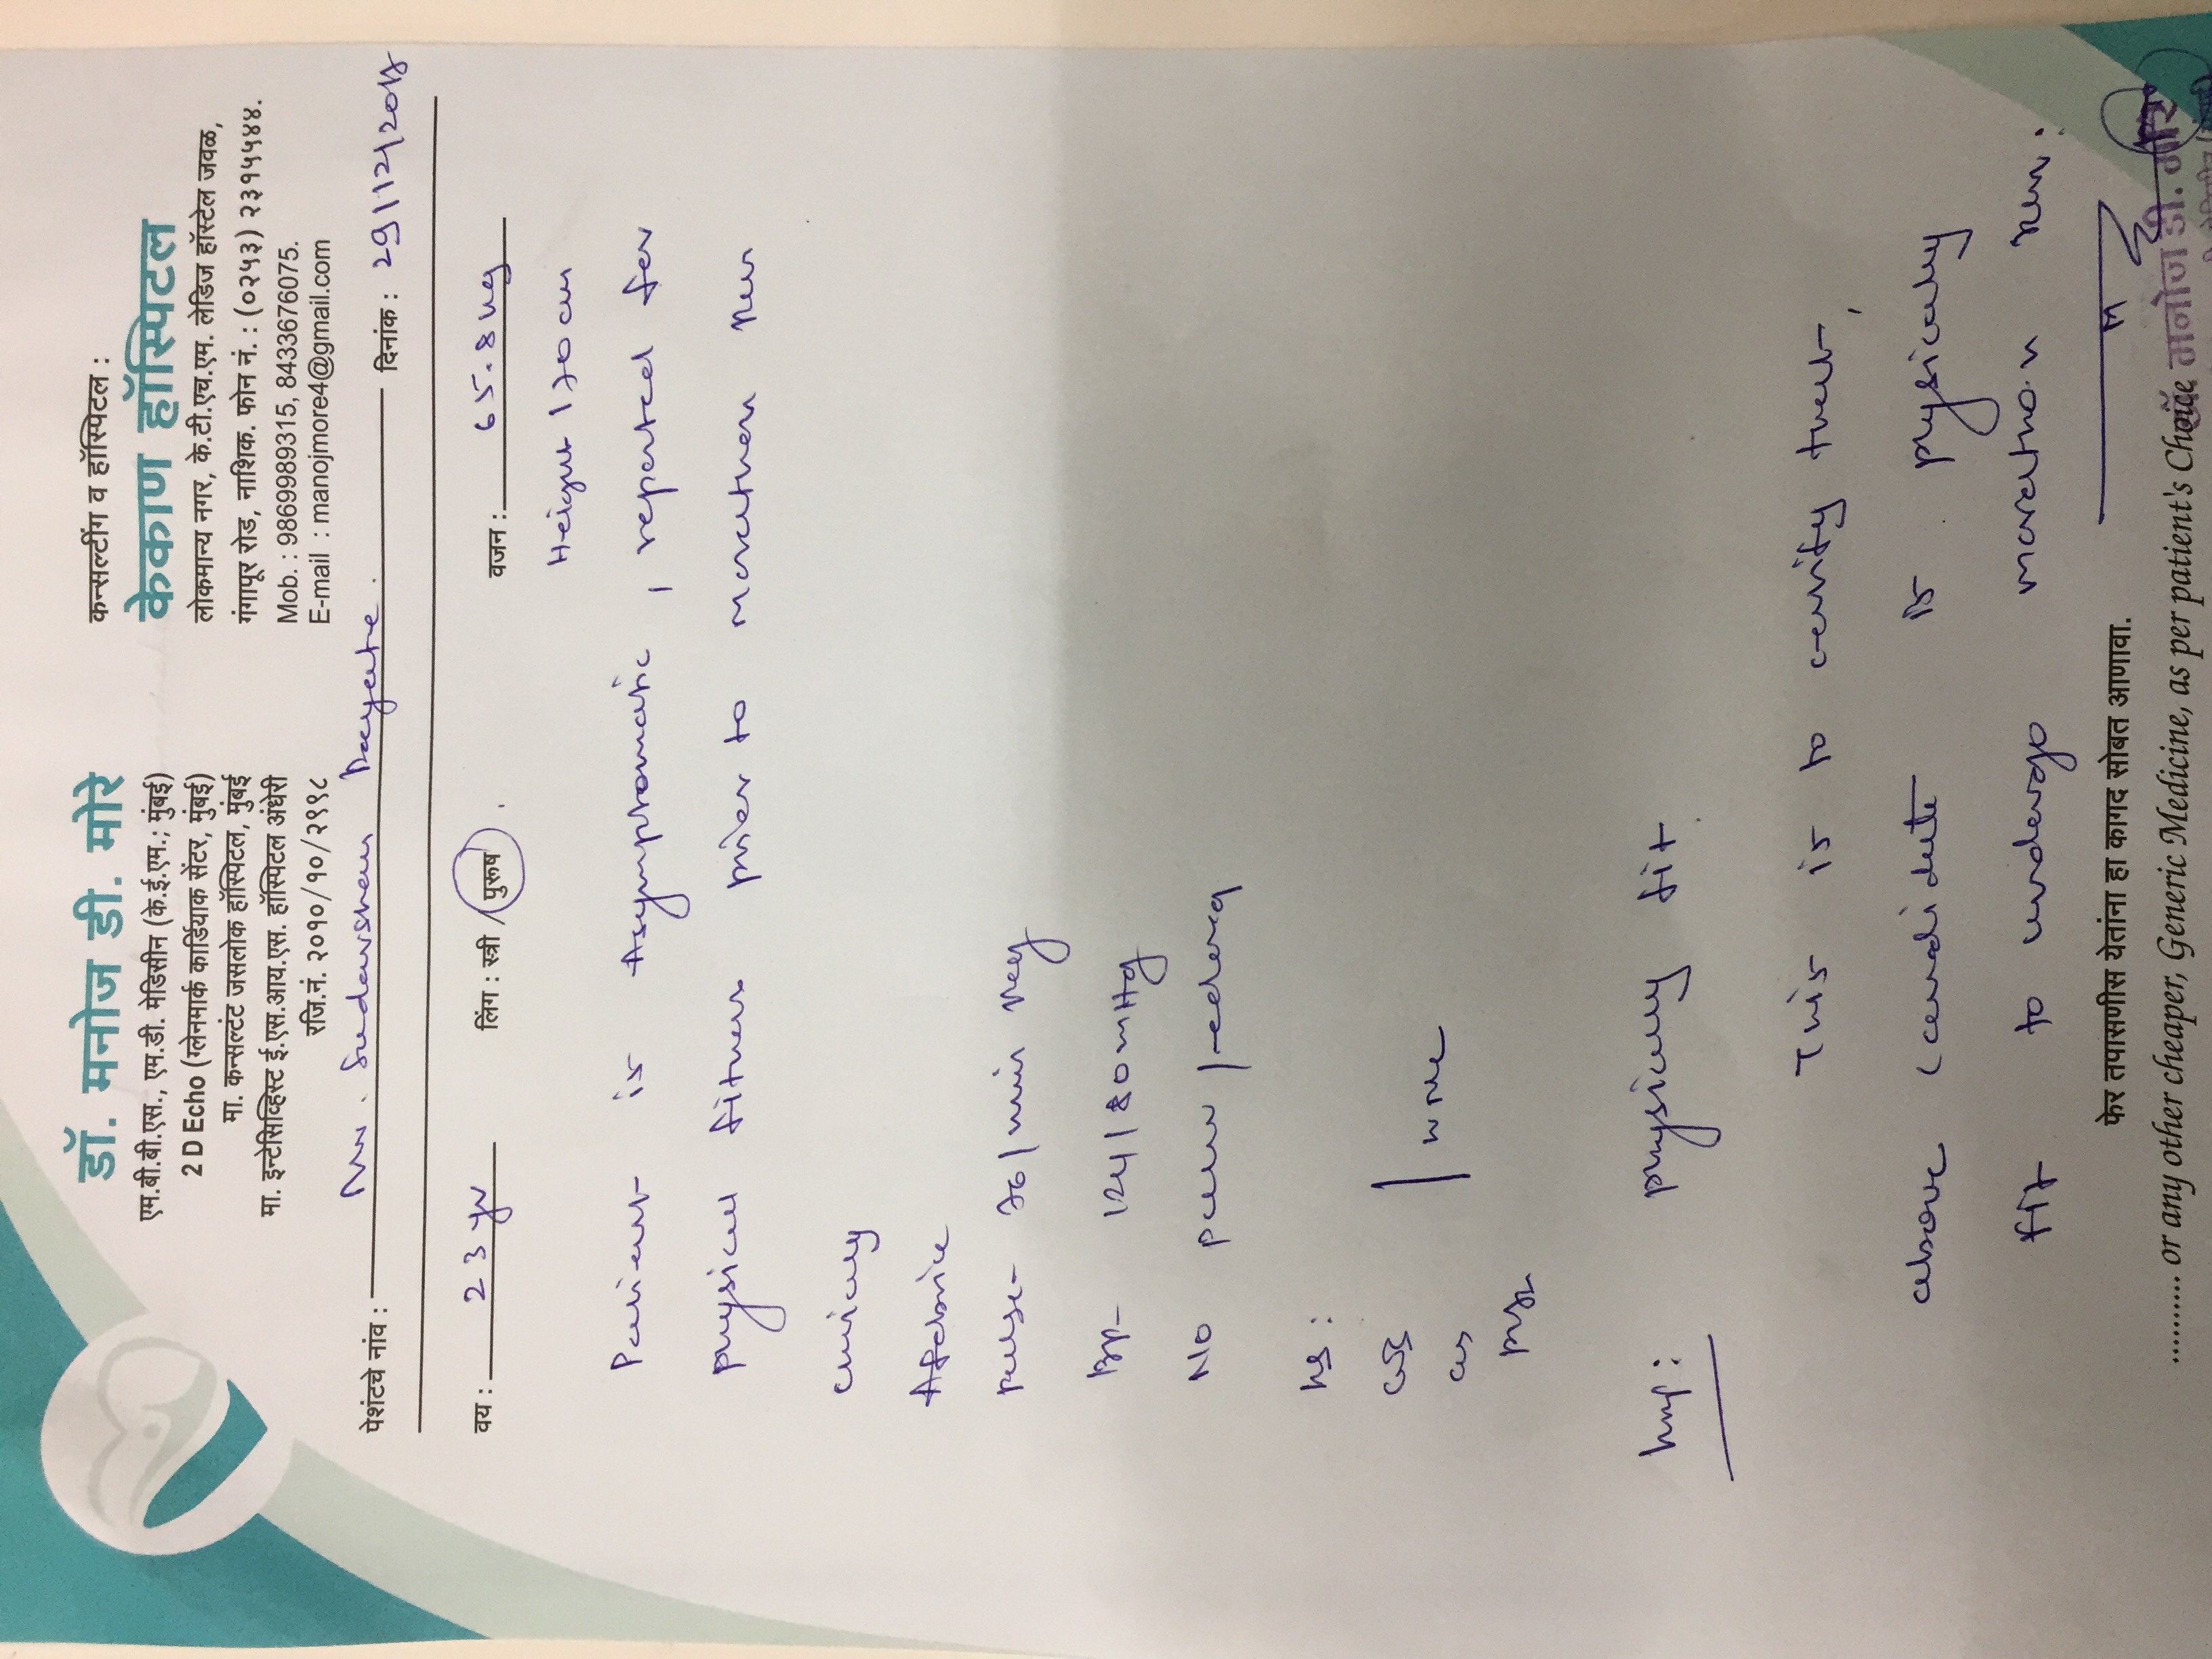 डॉ. मनोज डी. मोरे
एम.बी.बी.एस., एम.डी. मेडिसीन (के.ई.एम.; मुंबई)
2 D Echo (ग्लेनमार्क कार्डियाक सेंटर, मुंबई)
मा. कन्सल्टंट जसलोक हॉस्पिटल, मुंबई
मा. इन्टेसिव्हिस्ट ई.एस.आय.एस. हॉस्पिटल अंधेरी
रजि.नं. २०१०/१०/२९९८
कन्सल्टींग व हॉस्पिटल :
केकाण हॉस्पिटल
लोकमान्य नगर, के.टी.एच.एम. लेडिज हॉस्टेल जवळ,
गंगापूर रोड, नाशिक. फोन नं. : (०२५३) २३१५५४४.
Mob. : 9869989315, 8433676075.
E-mail : manojmore4@gmail.com
पेशंटचे नांव : Mr. Sudarshan दिनांक : 29/12/2018
वय : 23 yr लिंग : स्त्री / पुरूष वजन : 65.8 kg
Height 170 cm
Patient is Asymptomatic, reported for
physical fitness prior to marathon run
clinically
Afebrile
pulse- 76/min reg
BP- 124/80 mmHg
No /edema
CNS
Imp: physically fit
This is to certify that,
above candidate is physically
fit to undergo marathon run.
फेर तपासणीस येतांना हा कागद सोबत आणावा.
.......... or any other cheaper, Generic Medicine, as per patient's Choice
मनोज डी. मोरे